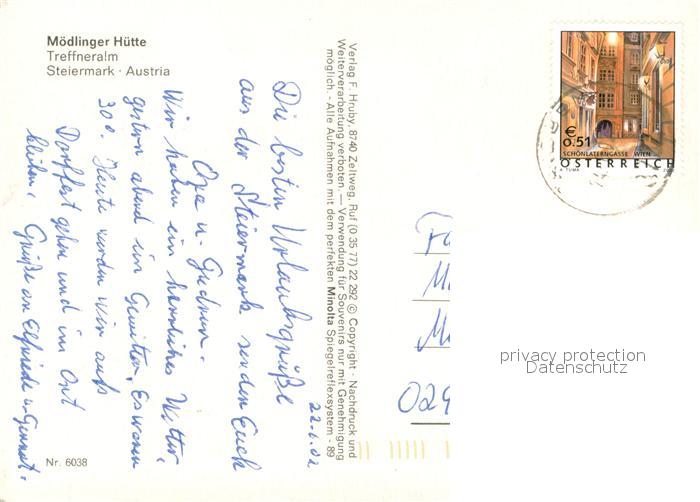 Mödlinger Hütte
Treffneralm
Steiermark · Austria
22.6.02
Die besten Urlaubsgrüße
aus der Steiermark senden Euch
Opa u. Gudrun.
Wir haben ein herrliches Wetter,
gestern abend ein Gewitter. Es waren
30°. Heute werden wir aufs
Dorffest gehen und im Ort
bleiben. Grüße an Elfriede u.
Nr. 6038
Verlag F. Hruby, 8740 Zeltweg, Ruf (0 35 77) 22 292 © Copyright · Nachdruck und
Weiterverarbeitung verboten. — Verwendung für Souvenirs nur mit Genehmigung
möglich. - Alle Aufnahmen mit dem perfekten Minolta Spiegelreflexsystem - 89
€
0.51
SCHÖNLATERNGASSE WIEN
ÖSTERREICH
A. TUMA
029
privacy protection
Datenschutz